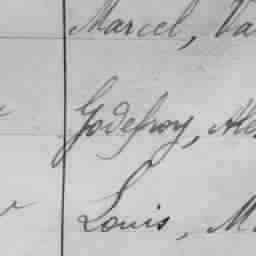 Marcel, Va
Godefroy, Ale
Louis, M